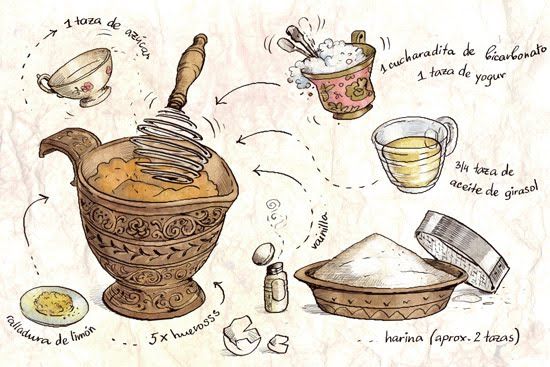 1 taza de azúcar
1 cucharadita de bicarbonato
1 taza de yogur
3/4 taza de
aceite de girasol
vainilla
ralladura de limón
5 x huevosss
harina (aprox. 2 tazas)